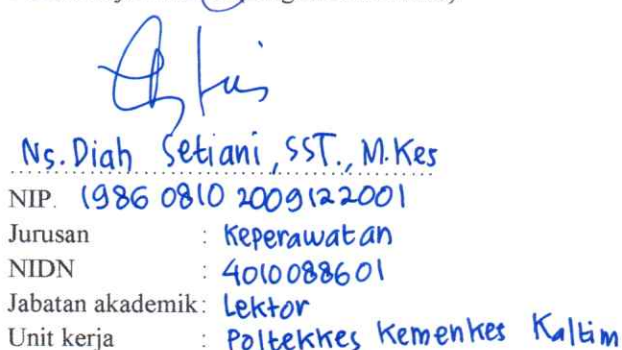 Ns. Diah Setiani, SST., M.Kes
NIP. 19860810 2009122001
Jurusan : Keperawatan
NIDN : 4010088601
Jabatan akademik: Lektor
Unit kerja : Poltekkes Kemenkes Kaltim